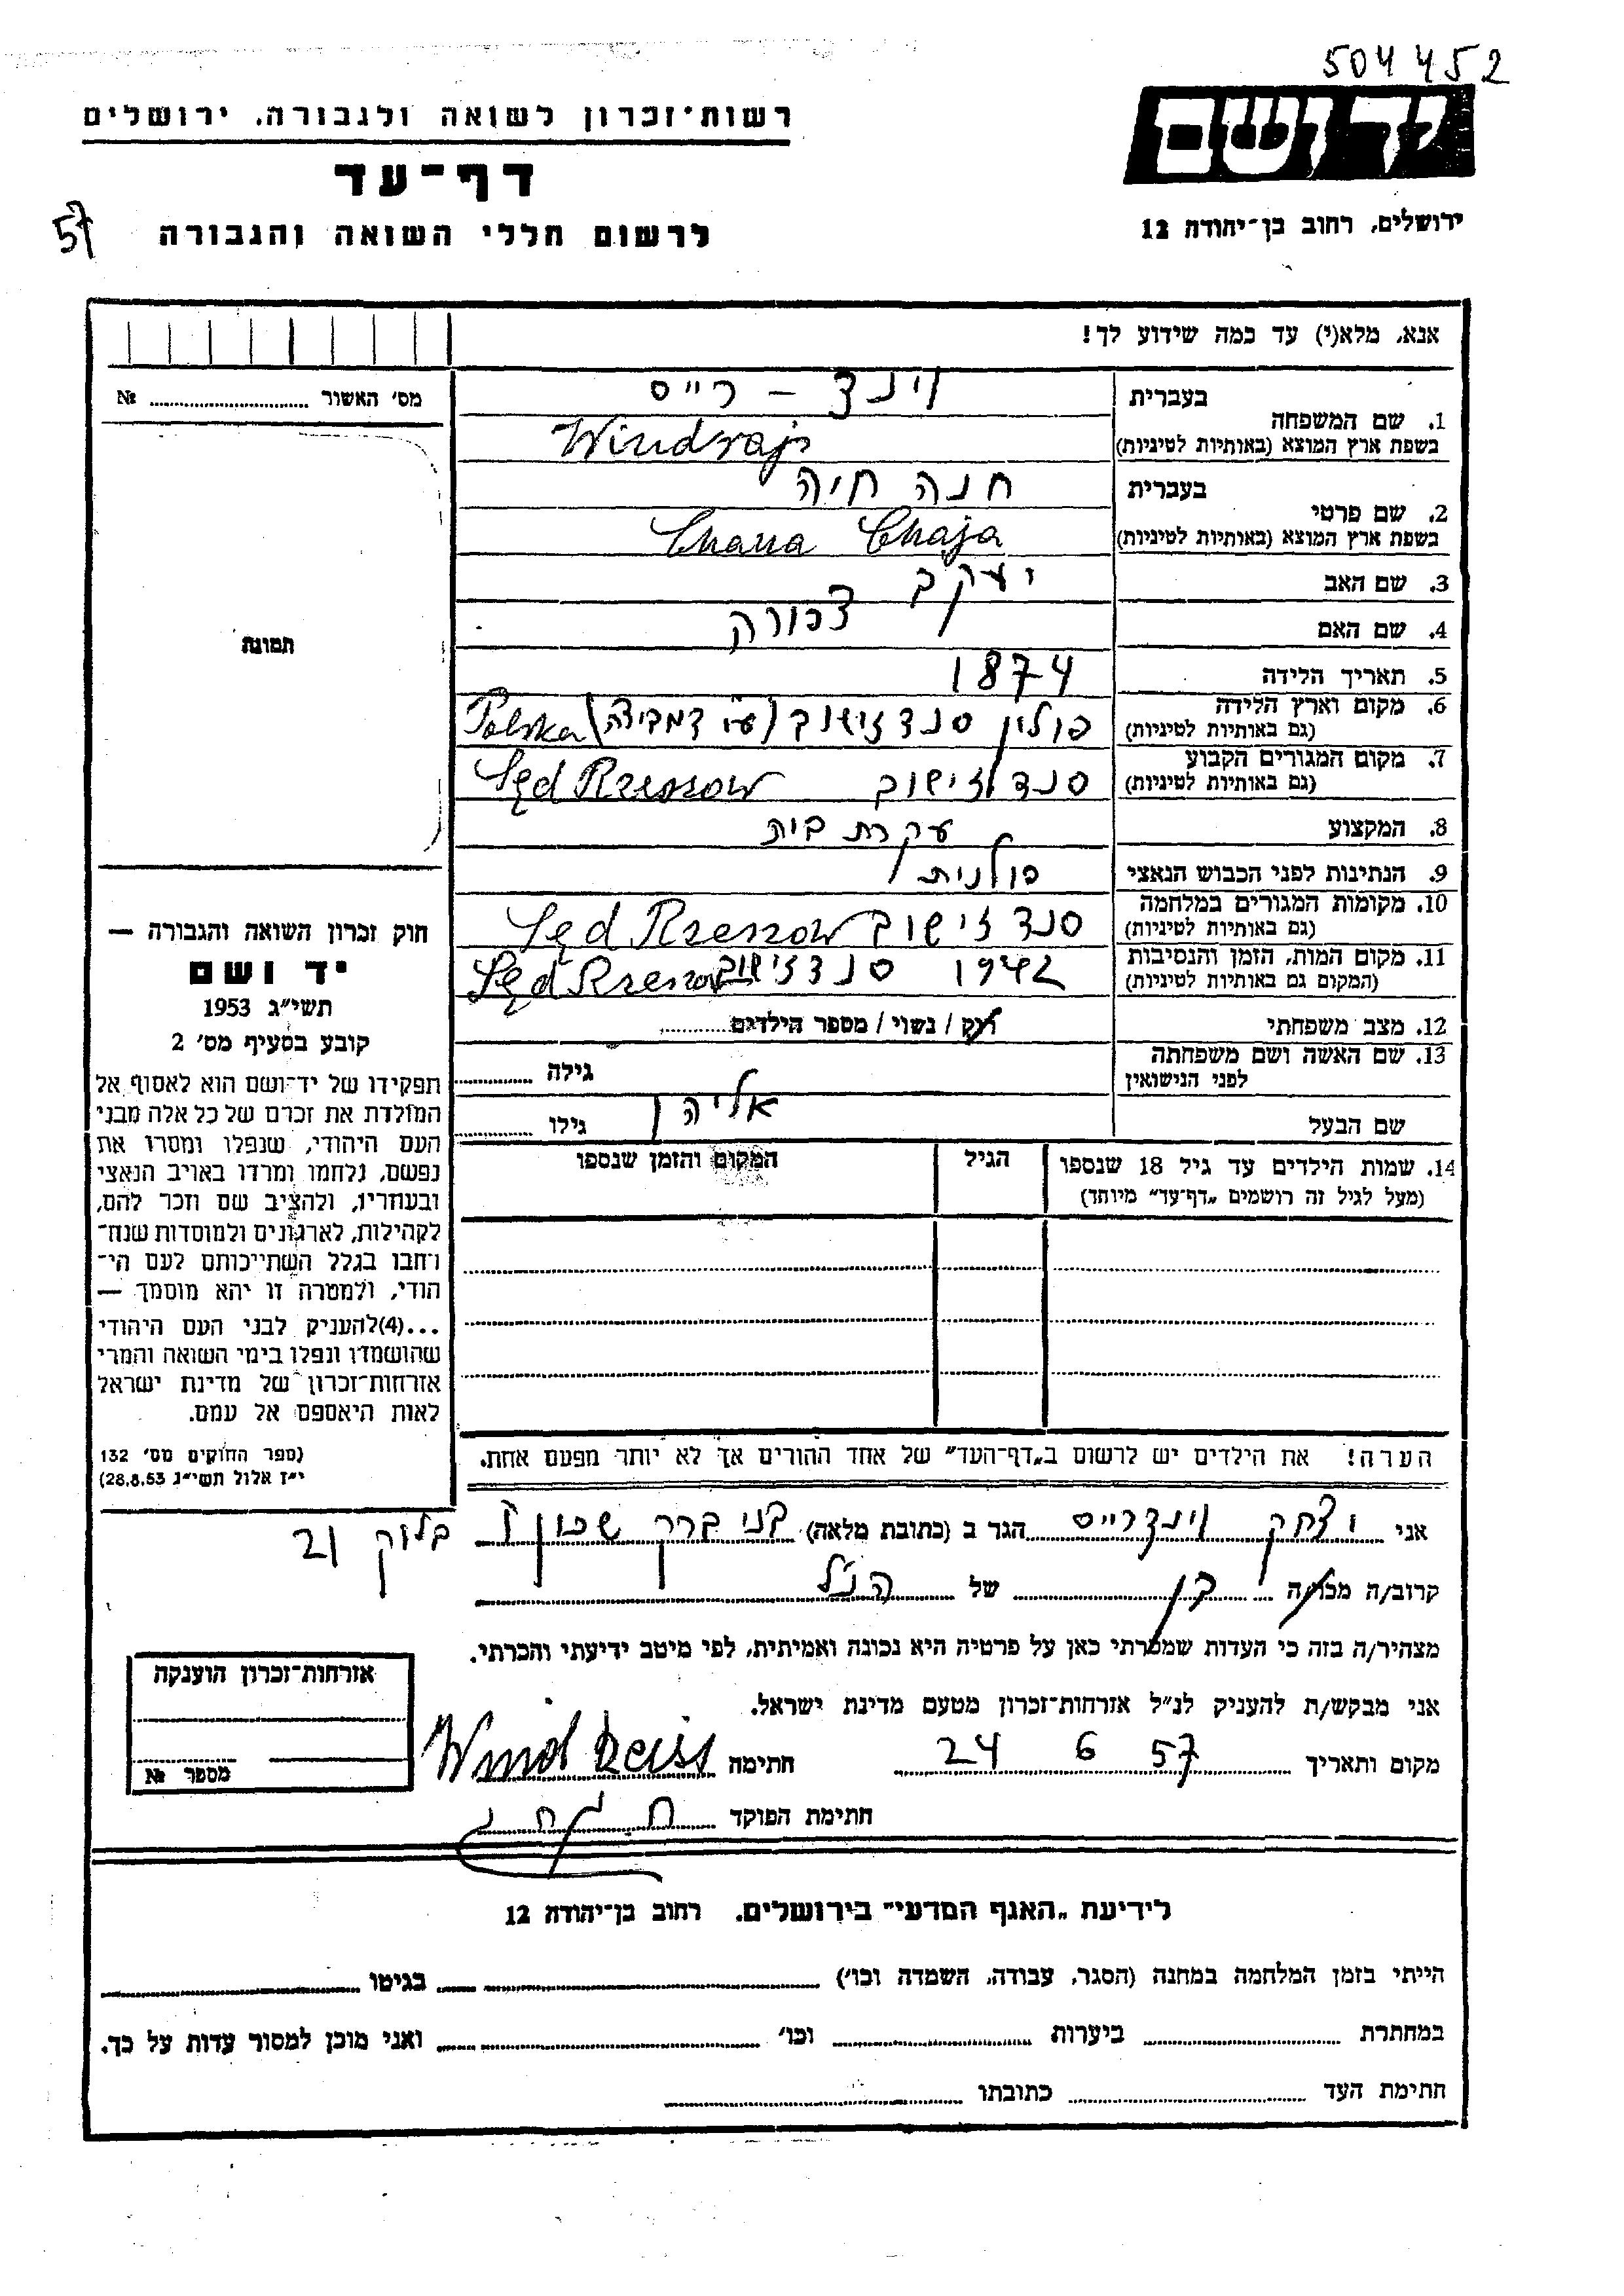 504452
יד ושם
ירושלים, רחוב בן־יהודה 12
רשות־זכרון לשואה ולגבורה, ירושלים
דף־עד
לרשום חללי השואה והגבורה
57
אנא, מלא(י) עד כמה שידוע לך!
מס׳ האשור № 
תמונה
בעברית וינד – רייס
1. שם המשפחה
בשפת ארץ המוצא (באותיות לטיניות) Windrajs
בעברית חנה חיה
2. שם פרטי
בשפת ארץ המוצא (באותיות לטיניות) Chana Chaja
3. שם האב יעקב
4. שם האם צפורה
5. תאריך הלידה 1874
6. מקום וארץ הלידה
(גם באותיות לטיניות) פולין סנדזישוב (ע״י דמביצה) Polska
7. מקום המגורים הקבוע
(גם באותיות לטיניות) סנדזישוב Sęd Rzeszow
8. המקצוע עקרת בית
9. הנתינות לפני הכבוש הנאצי פולנית
10. מקומות המגורים במלחמה
(גם באותיות לטיניות) סנדזישוב Sęd Rzeszow
11. מקום המות, הזמן והנסיבות
(המקום גם באותיות לטיניות) 1942 סנדזישוב Sęd Rzeszow
12. מצב משפחתי רוק / נשוי / מספר הילדים
13. שם האשה ושם משפחתה
לפני הנישואין גילה
שם הבעל אליהו גילו
14. שמות הילדים עד גיל 18 שנספו הגיל המקום והזמן שנספו
(מעל לגיל זה רושמים „דף־עד״ מיוחד)
הערה! את הילדים יש לרשום ב„דף־העד״ של אחד ההורים אך לא יותר מפעם אחת.
חוק זכרון השואה והגבורה —
יד ושם
תשי״ג 1953
קובע בסעיף מס׳ 2
תפקידו של יד־ושם הוא לאסוף אל
המולדת את זכרם של כל אלה מבני
העם היהודי, שנפלו ומסרו את
נפשם, נלחמו ומרדו באויב הנאצי
ובעוזריו, ולהציב שם וזכר להם,
לקהילות, לארגונים ולמוסדות שנח־
רבו בגלל השתייכותם לעם הי־
הודי, ולמטרה זו יהא מוסמך —
...(4)להעניק לבני העם היהודי
שהושמדו ונפלו בימי השואה והמרי
אזרחות־זכרון של מדינת ישראל
לאות היאספם אל עמם.
(ספר החוקים מס׳ 132
י״ז אלול תשי״ג 28.8.53)
אני יצחק וינדרייס הגר ב (כתובת מלאה) בני ברק שכון ז בלוק 21
קרוב/ה מכר/ה בן של הנ״ל
מצהיר/ה בזה כי העדות שמסרתי כאן על פרטיה היא נכונה ואמיתית, לפי מיטב ידיעתי והכרתי.
אני מבקש/ת להעניק לנ״ל אזרחות־זכרון מטעם מדינת ישראל.
מקום ותאריך 24 6 57 חתימה Wind Reiss
חתימת הפוקד
אזרחות־זכרון הוענקה
מספר №
לידיעת „האגף המדעי״ בירושלים, רחוב בן־יהודה 12
הייתי בזמן המלחמה במחנה (הסגר, עבודה, השמדה וכו׳) בגיטו
במחתרת ביערות וכו׳ ואני מוכן למסור עדות על כך.
חתימת העד כתובתו